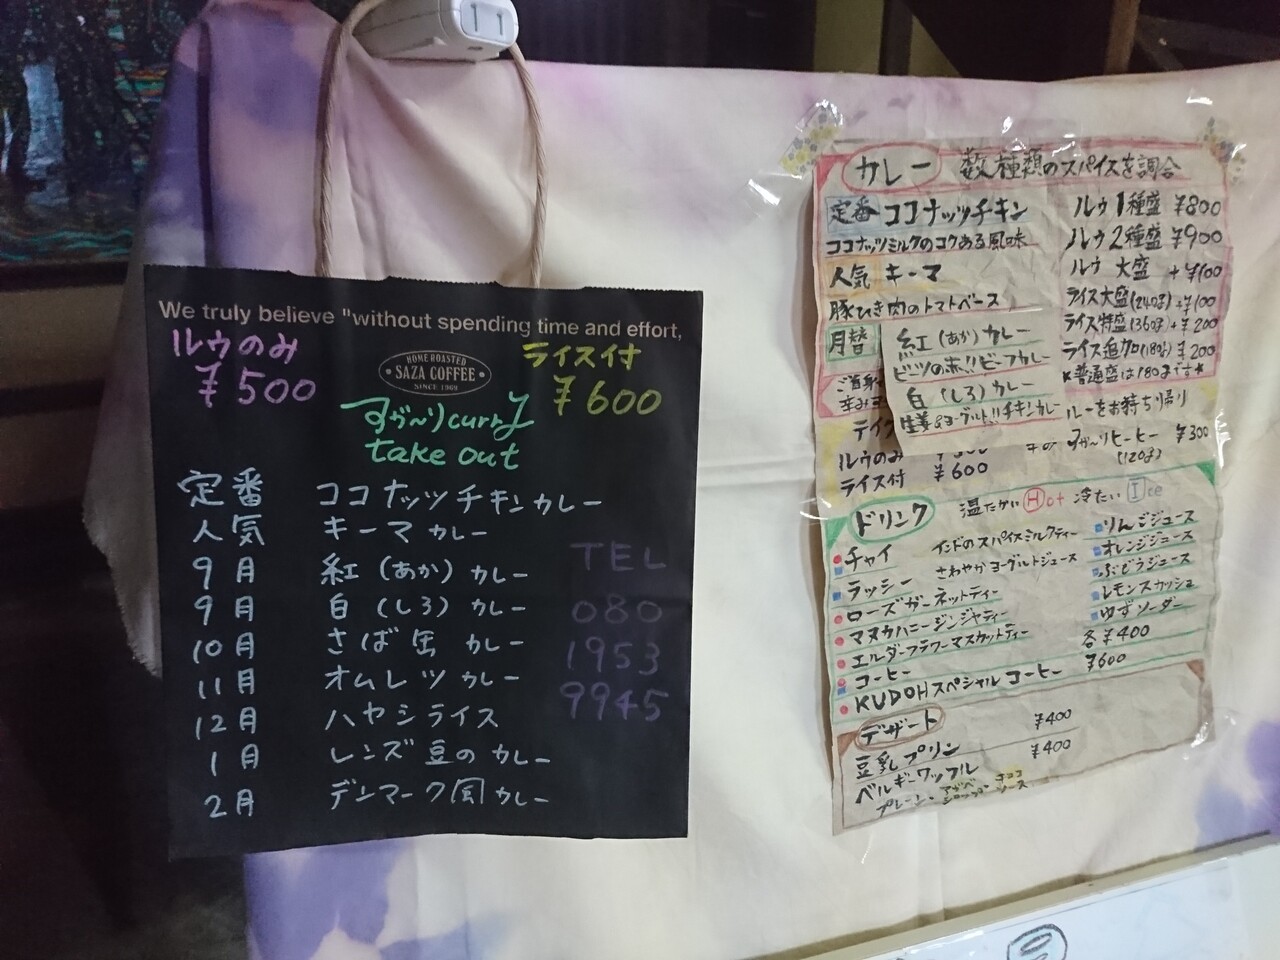 We truly believe "without spending time and effort,
ルウのみ
¥500
HOME ROASTED
SAZA COFFEE
SINCE 1969
ライス付
¥600
すが〜りcurry
take out
定番 ココナッツチキンカレー
人気 キーマカレー
9月 紅(あか)カレー
9月 白(しろ)カレー
10月 さば缶カレー
11月 オムレツカレー
12月 ハヤシライス
1月 レンズ豆のカレー
2月 デンマーク風カレー
TEL
080
1953
9945
カレー 数種類のスパイスを調合
定番 ココナッツチキン
ココナッツミルクのコクある風味
人気 キーマ
豚ひき肉のトマトベース
月替
紅(あか)カレー
ビーツの赤!!ビーフカレー
白(しろ)カレー
生姜&ヨーグルト!!チキンカレー
ご自身
辛み
テイク
ルウのみ ¥500
ライス付 ¥600
ルウ1種盛 ¥800
ルウ2種盛 ¥900
ルウ 大盛 +¥100
ライス大盛(240g)+¥100
ライス特盛(360g)+¥200
ライス追加(180g)¥200
*普通盛は180gです*
ルーをお持ち帰り
すが〜りヒーヒー ¥300
(120g)
ドリンク 温たかい Hot 冷たい Ice
チャイ インドのスパイスミルクティー
ラッシー さわやかヨーグルトジュース
ローズガーネットティー
マヌカハニージンジャティー
エルダーフラワーマスカットティー
コーヒー
KUDOHスペシャルコーヒー
りんごジュース
オレンジジュース
ぶどうジュース
レモンスカッシュ
ゆずソーダー
各¥400
¥600
デザート
豆乳プリン ¥400
ベルギーワッフル ¥400
プレーン・アガベシロップ・チョコソース